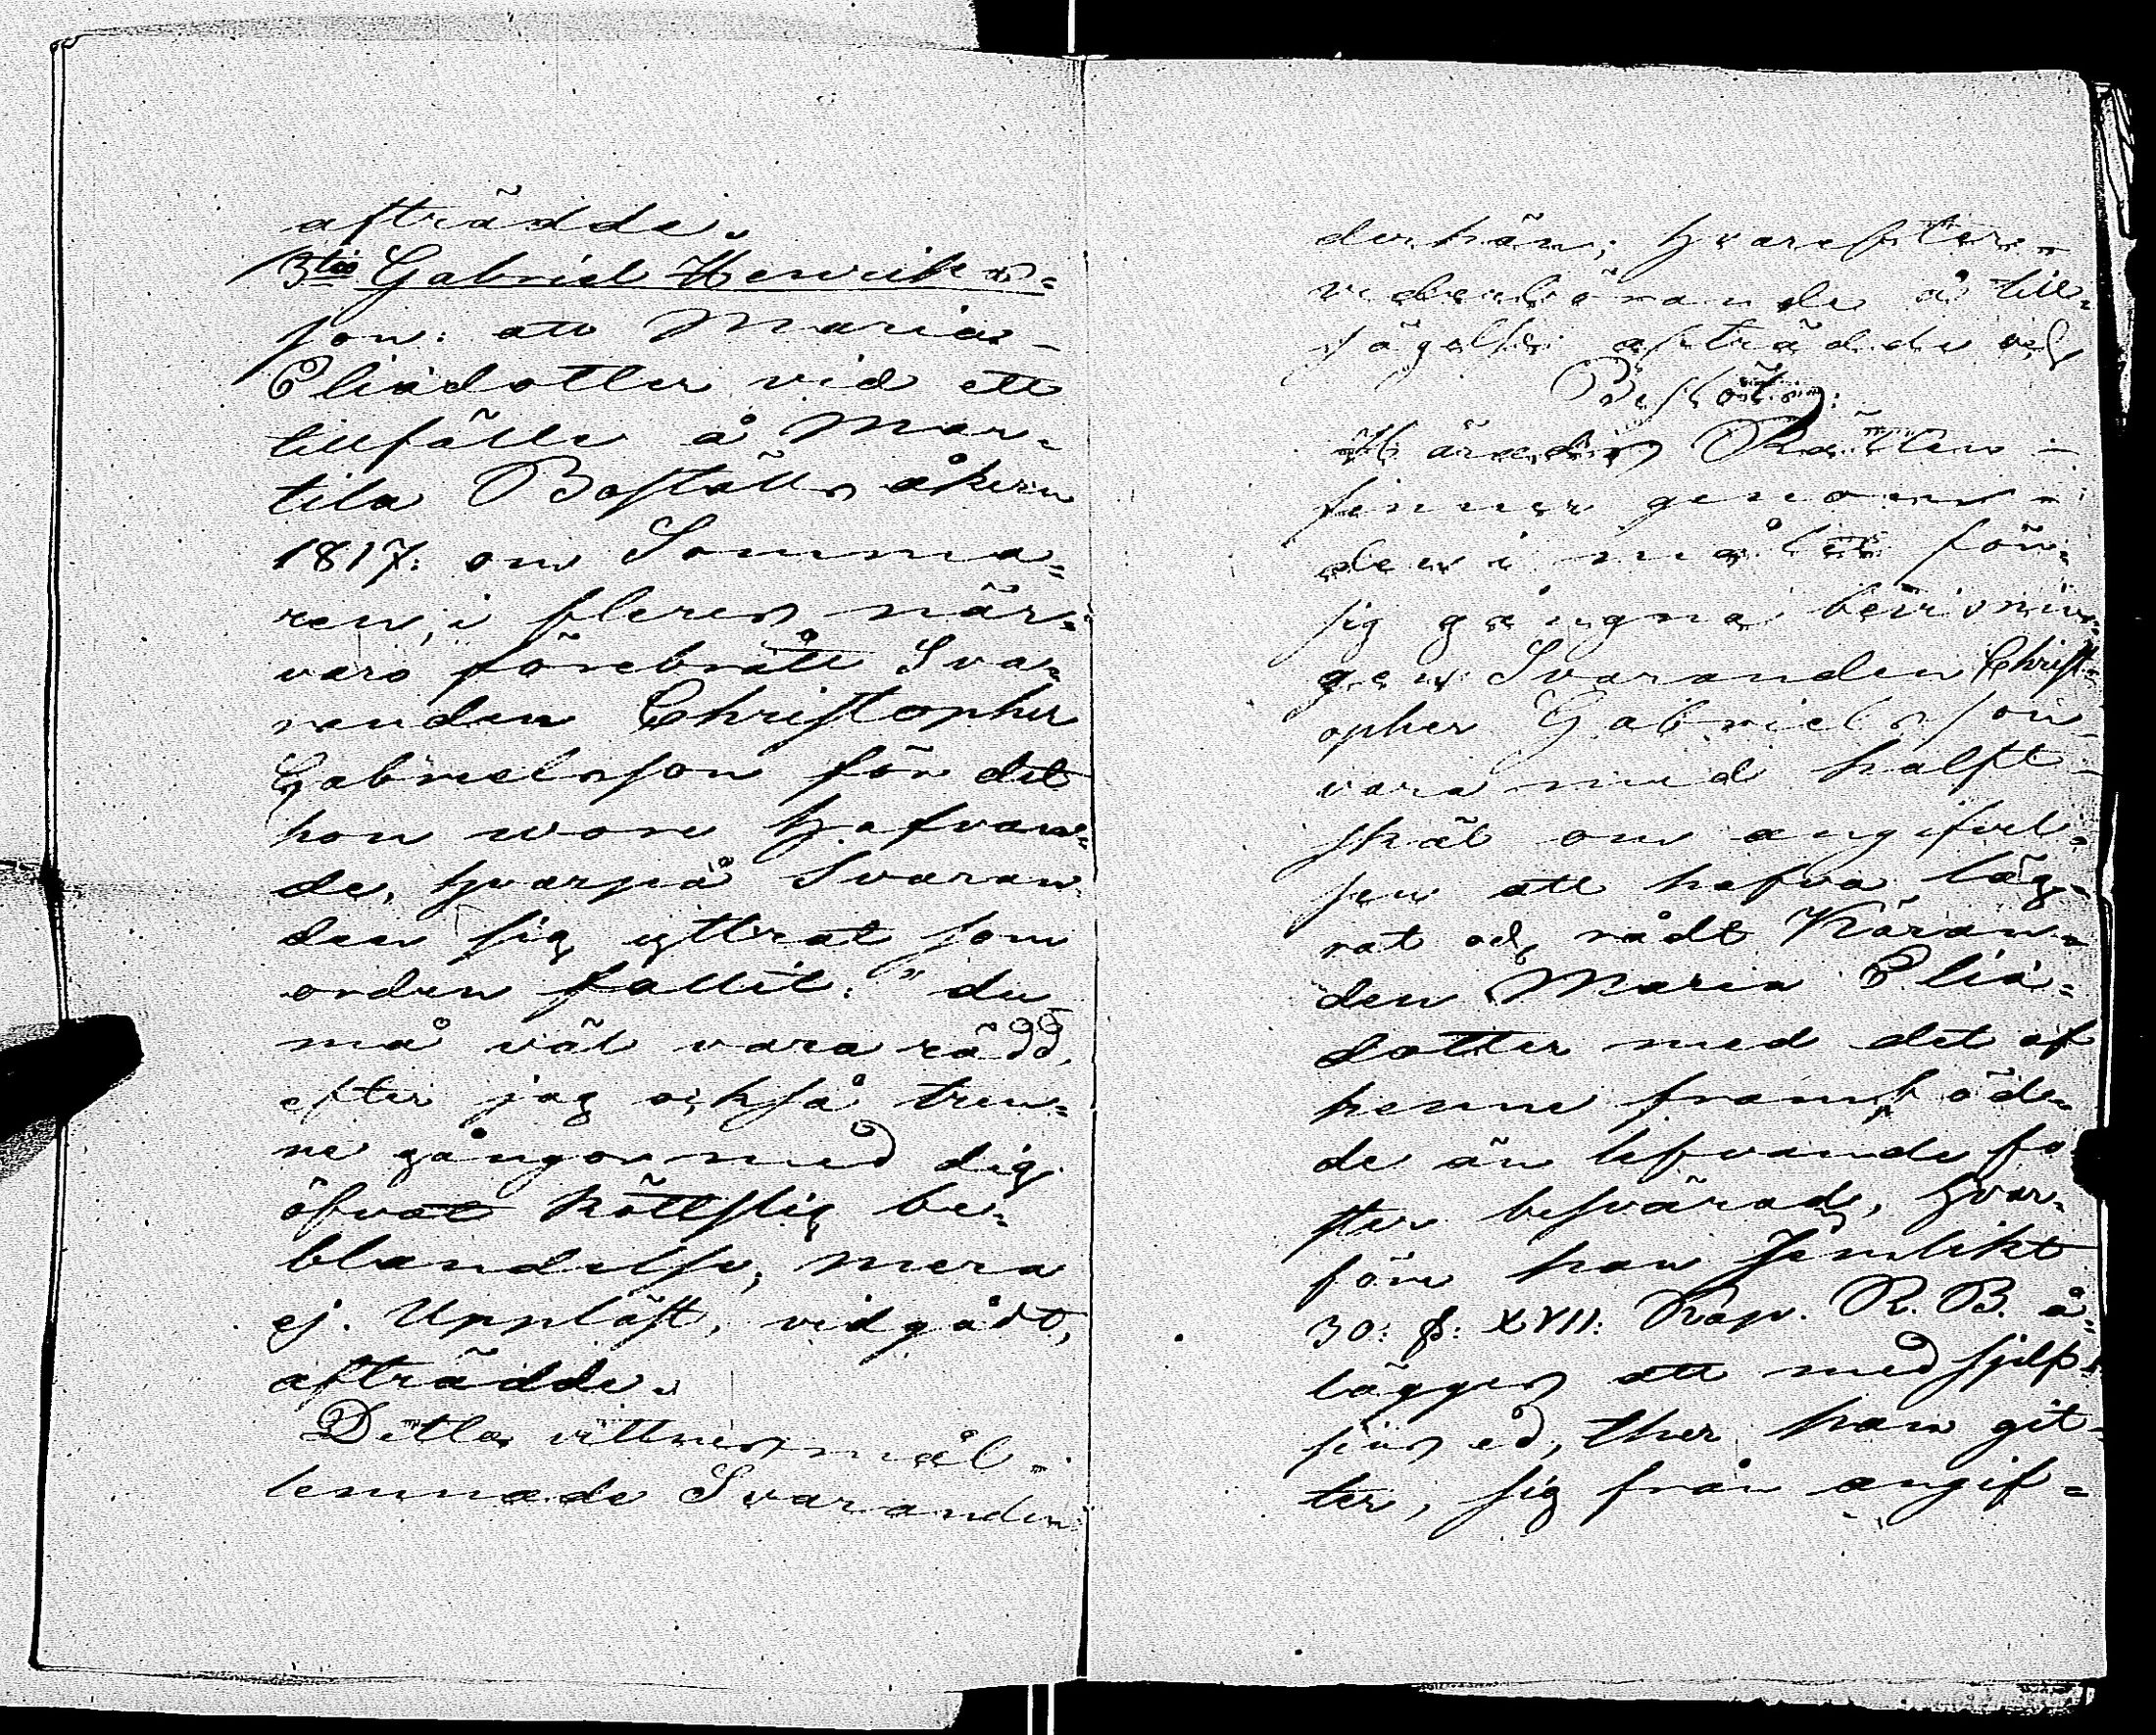 afträdde.
3tio Gabriel Henriks=
son: att Maria
Eliædotter vid ett
tillfälle å Mar=
tila Boställs åkern
1817. om Somma=
ren, i fleres när=
varo förebrått Sva=
randen Christopher
Gabrielsson för det
hon wore hafvan=
de, hvarpå Svaran
den sig yttrat som
orden fallit: "du
må väl vara rädd,
efter jag också tren=
ne gångor med dig
öfvat köttslig be=
blandelse, mera
ej. Uppläst, vidgådt,
afträdde.
Detta vittnesmål
lemnade Svaranden
derhän; hvarefter
vederbörande å till=
sägelse afträdde och
Beslöts:
Härads Rätten
finner genom
den i målet för=
sig gångna bevisnin=
gen Svaranden Christ=
opher Gabrielsson
vara med halft
skäl om angifvel=
sen att hafva läg=
rat och rådt Käran=
den Maria Eliæ=
dotter med det af
henne framfödde
de än lefvande fo
ster besvärad, hvar=
före han Jemlikt
30: §: XVII: Kap. R. B. å=
lägges att med sjelf
sins ed, ther han git=
ter, sig från angif=